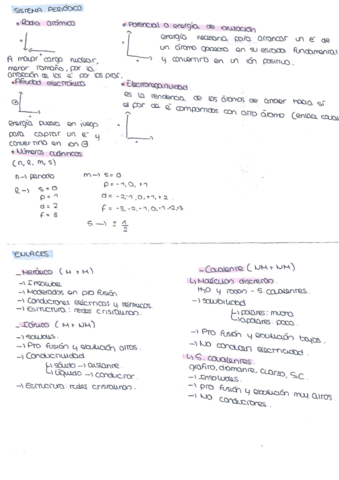 SISTEMA PERIÓDICO
• Radio atómico
A mayor carga nuclear,
menor tamaño, por la
atracción de los é por los prot.
• Afinidad electrónica
energía puesta en juego
para captar un é y
convertirlo en ion ⊖
• Números cuánticos
(n, l, m, s)
n → periodo
l → s = 0
p = 1
d = 2
f = 3
m → s = 0
p = -1, 0, +1
d = -2, -1, 0, +1, +2
f = -3, -2, -1, 0, 1, 2, 3
s → ± 1/2
• Potencial o energía de ionización
energía necesaria para arrancar un é de
un átomo gaseoso en su estado fundamental
y convertirlo en un ión positivo.
• Electronegatividad
es la tendencia de los átomos de atraer hacia sí
el par de é compartidos con otro átomo (enlace
ENLACES
- Metálico (M + M)
→ Insoluble
→ Moderados en pto fusión
→ Conductores eléctricos y térmicos
→ Estructura: redes cristalinas.
- Iónico (M + NM)
→ Solubles
→ Pto fusión y ebullición altos.
→ Conductividad
↳ sólido → aislante
↳ líquido → conductor
→ Estructura: redes cristalinas.
- Covalente (NM + NM)
↳ Moléculas discretas
H₂O y S. covalentes.
→ solubilidad
↳ polares: mucho
↳ apolares: poco.
→ Pto fusión y ebullición bajos.
→ No conducen electricidad
↳ S. covalentes
grafito, diamante, cuarzo, SiC
→ Insolubles.
→ pto fusión y ebullición muy altos
→ No conductores.